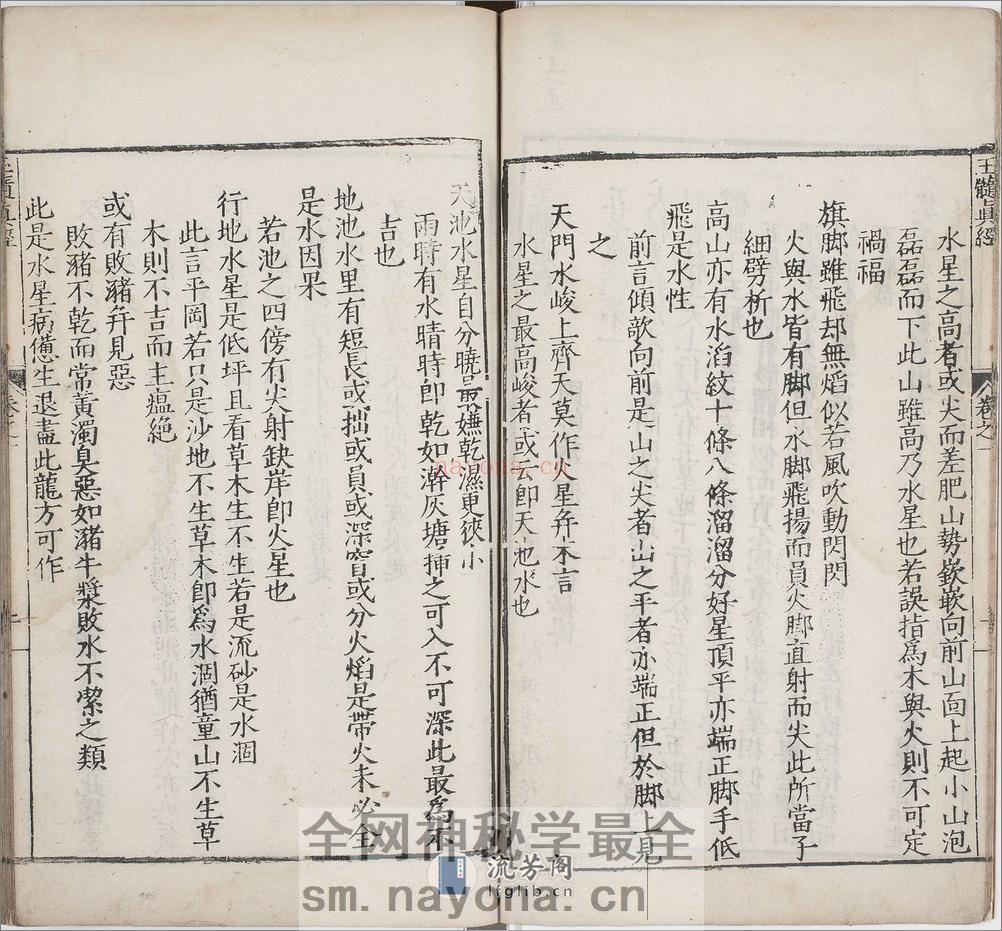 玉髓真經
卷之一
水星之高者或尖而差肥山勢嶔嶔向前山面上起小山泡
磊磊而下此山雖高乃水星也若誤指爲木與火則不可定
禍福
旗脚雖飛却無熖似若風吹動閃閃
火與水皆有脚但水脚飛揚而員火脚直射而尖此所當子
細劈析也
高山亦有水滔紋十條八條溜溜分好星頂平亦端正脚手低
飛是水性
前言傾欹向前是山之尖者山之平者亦端正但於脚上見
之
天門水峻上齊天莫作火星弁木言
水星之最高峻者或云卽天池水也
天池水星自分曉最嫌乾濕更狹小
雨時有水晴時卽乾如澣灰塘揷之可入不可深此最爲不
吉也
地池水里有短長或拙或員或深窅或分火熖是帶火未必全
是水因果
若池之四傍有尖射缺岸卽火星也
行地水星是低坪且看草木生不生若是流砂是水涸
此言平岡若只是沙地不生草木卽爲水涸猶童山不生草
木則不吉而主瘟絶
或有敗豬弁見惡
敗豬不乾而常黃濁臭惡如潴牛漿敗水不潔之類
此是水星病憊生退盡此龍方可作
二
全网神秘学最全
流芳阁
lfglib.cn
sm.nayona.cn
nayona.cn